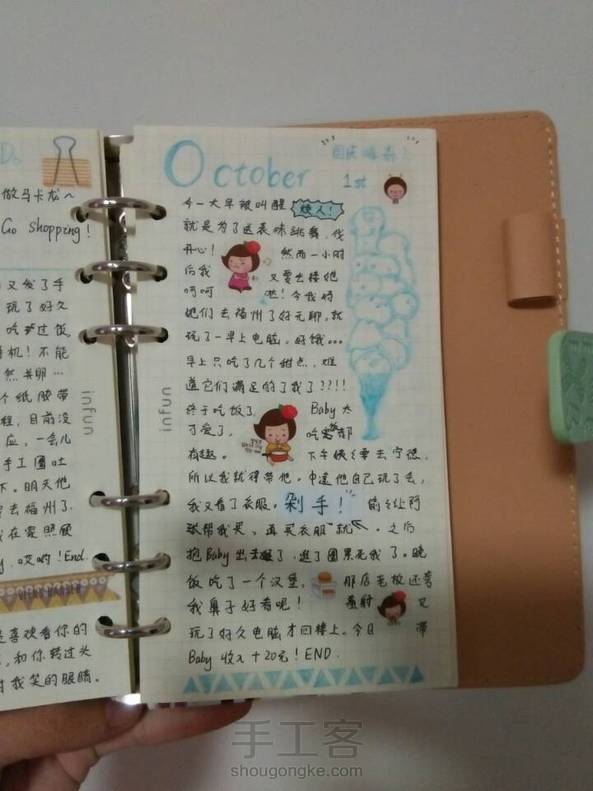 做马卡龙~
Go shopping!
又发了手
玩了好久
机!不能
个纸胶带
程,目前没
应,一会儿
手工圈吐
下。明天他
去福州了.
在需照顾
哎哟!End.
是喜欢看你的
,和你转过头
对我笑的眼睛。
infun
October
国庆
1st
今一大早被叫醒 烦人!
就是为了送表妹跳舞,伐
开心! 然而一小时
后我 又要去接她
呵呵 啦!今我妈
她们去福州了好无聊,就
玩了一早上电脑,好饿...
早上只吃了几个甜点,难
道它们满足的了我了????!!
终于吃饭了, Baby太
可爱了, 吃 都
有趣。 下午姨要去宁德,
所以我就得带他。中途他自己玩了去,
我又看了衣服, 剁手!
帮我买,再买衣服就 。之后
抱Baby出去 了,逛了圈累死我了。晚
饭吃了一个汉堡, 那店老板还夸
我鼻子好看呢! 羞射 又
玩了好久电脑才回楼上。今日 带
Baby 收入+20元!END.
infun
手工客
shougongke.com